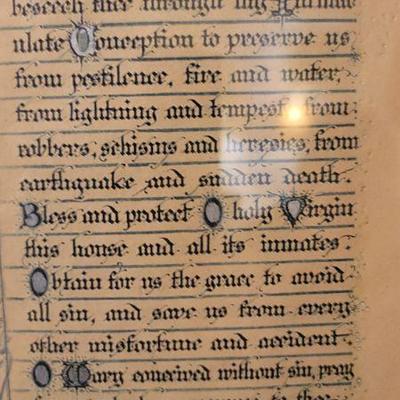 beseech thee through thy Immac
ulate Conception to preserve us
from pestilence, fire and water,
from lightning and tempest, from
robbers, schisms and heresies, from
earthquake and sudden death.
Bless and protect O holy Virgin
this house and all its inmates.
Obtain for us the grace to avoid
all sin, and save us from every
other misfortune and accident.
O Mary conceived without sin, pray